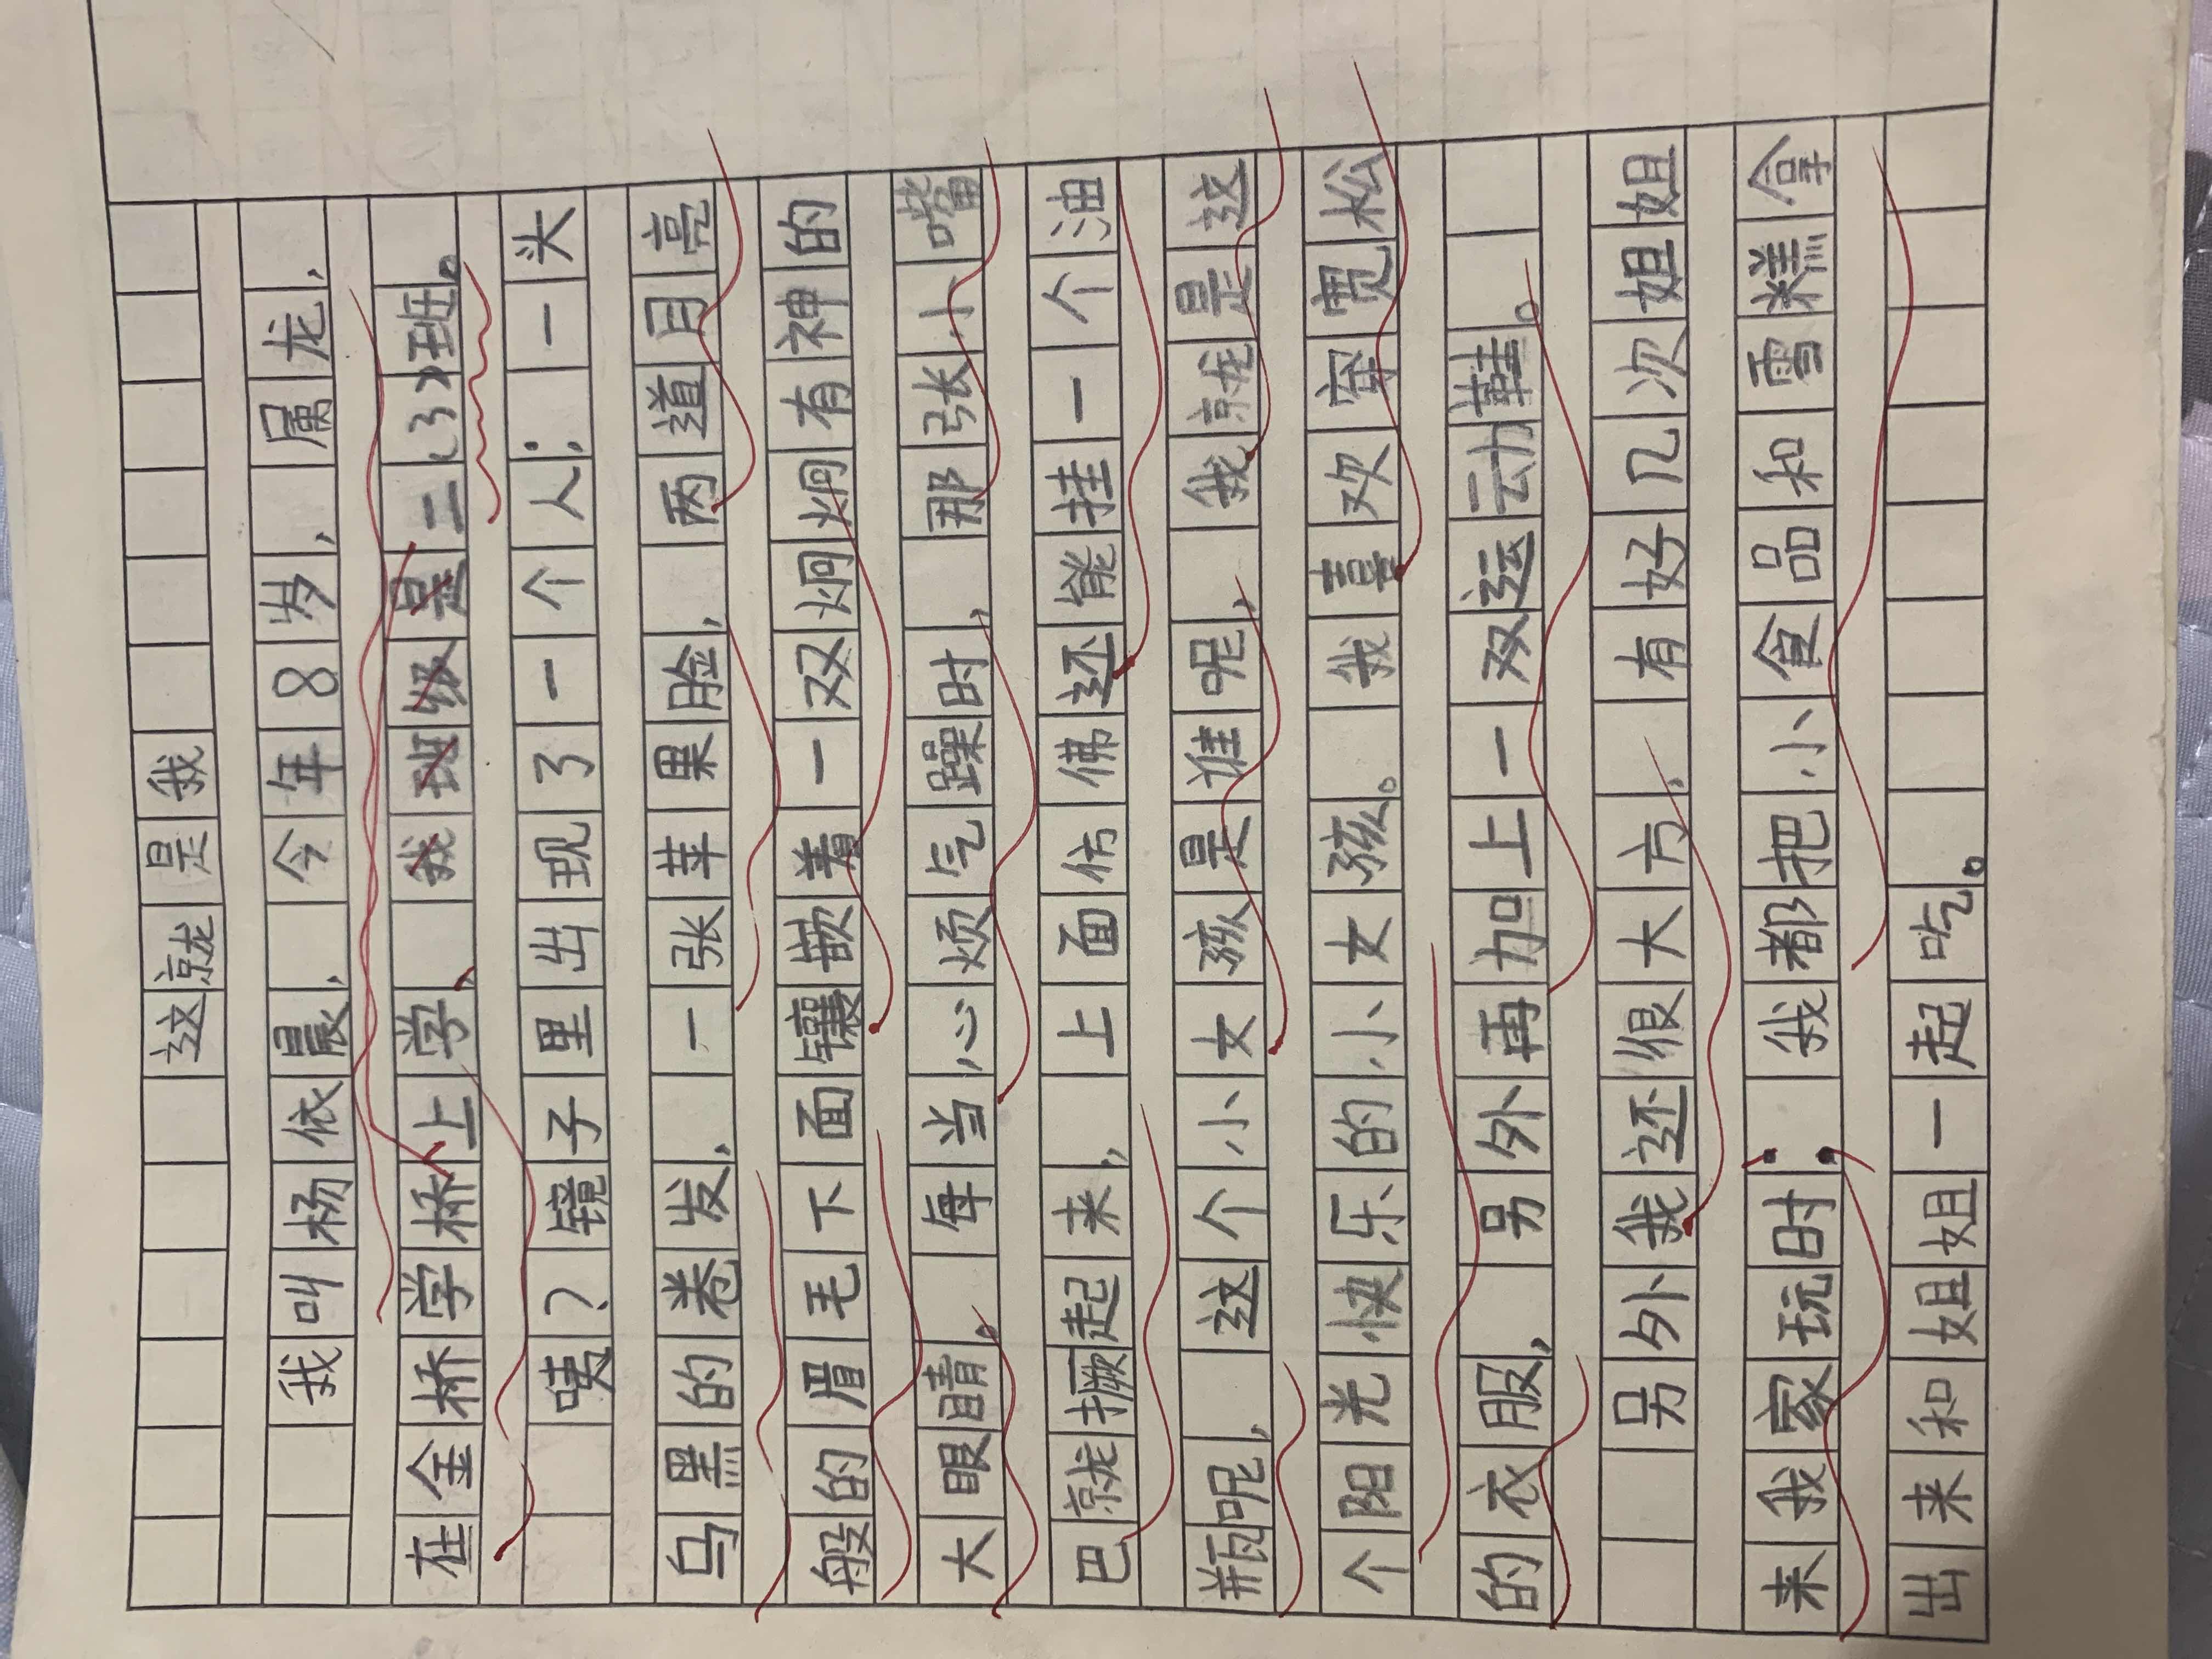 这就是我
我叫杨依晨，今年8岁，属龙，
在金桥学桥上学，我班级是二(3)班。
咦？镜子里出现了一个人：一头
乌黑的卷发，一张苹果脸，两道月亮
般的眉毛下面镶嵌着一双炯炯有神的
大眼睛。每当心烦气躁时，那张小嘴
巴就撅起来，上面仿佛还能挂一个油
瓶呢，这个小女孩是谁呢，我就是这
个阳光快乐的小女孩。我喜欢穿宽松
的衣服，另外再加上一双运动鞋。
另外我还很大方，有好几次姐姐
来我家玩时；我都把小食品和雪糕拿
出来和姐姐一起吃。